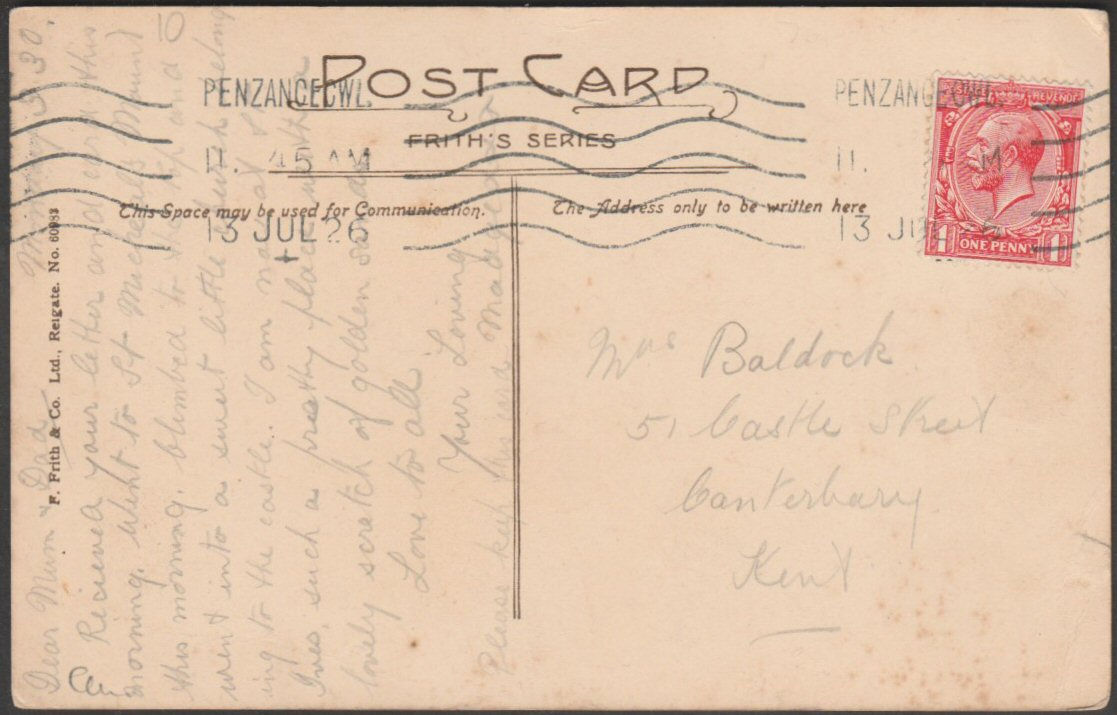 POST CARD
FRITH'S SERIES
PENZANCE CWL.
11. 45 AM
13 JUL 26
PENZANCE CWL.
11. M
13 JUL
POSTAGE REVENUE
1 ONE PENNY 1
This Space may be used for Communication.
The Address only to be written here
F. Frith & Co. Ltd., Reigate. No. 60983
10
Dear Mum & Dad 5 30.
Recieved your letter and card this
morning. Went to St Micheals Mount
this morning. Climbed to the top and
went into a sweet little church belong
ing to the castle. I am now at St
Ives, such a pretty place with a
lovely scratch of golden sands
Love to all
Your Loving
Please keep this
Mrs Baldock
51 Castle Street
Canterbury
Kent